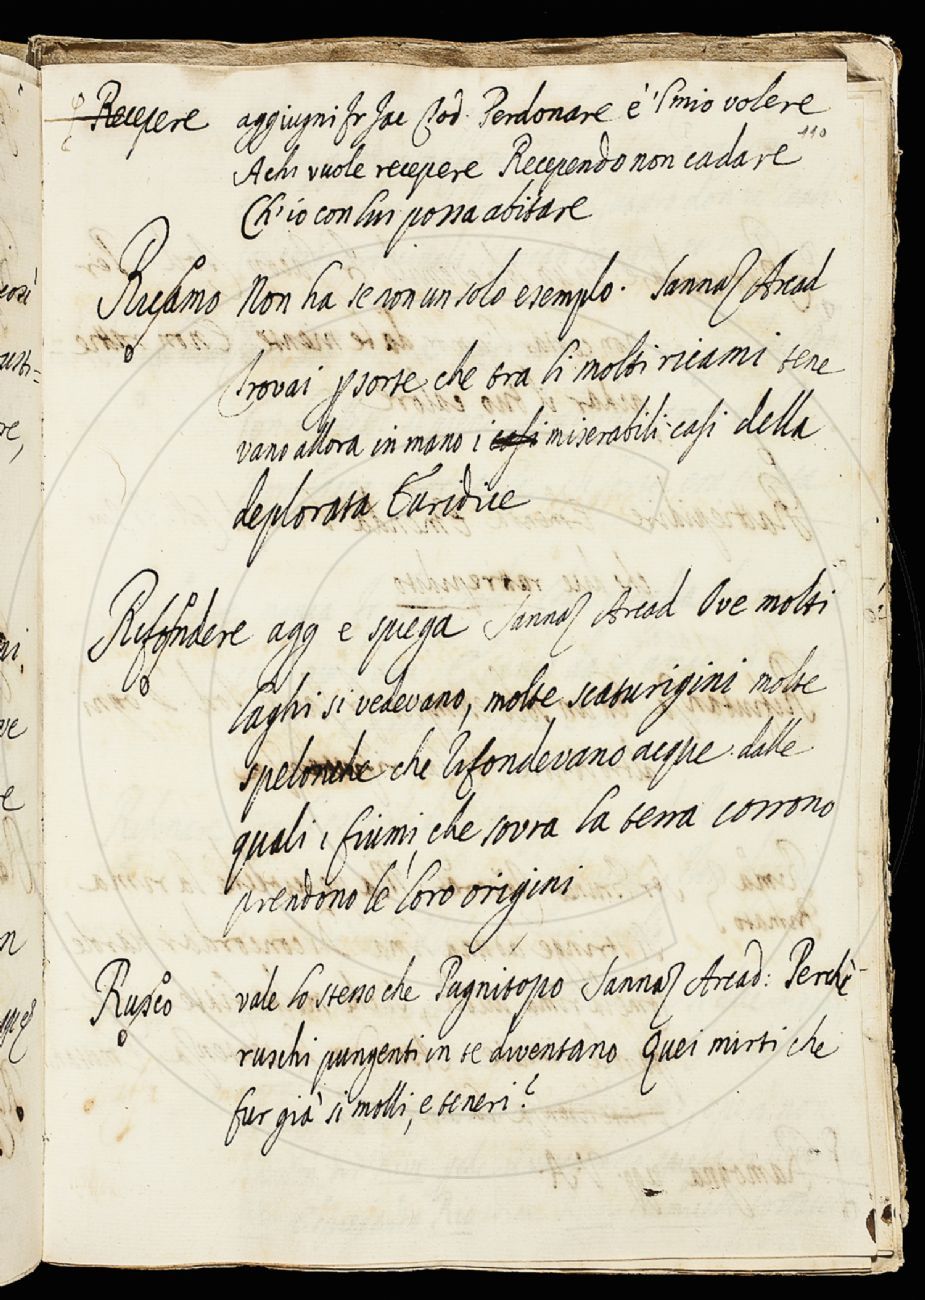 Recepere aggiugni Fr Jac Tod. Perdonare è 'l mio volere
110
A chi vuole recepere Recependo non cadare
Ch' io con lui possa abitare
Ricamo Non ha se non un solo esempio. Sannaz Arcad
Trovai p sorte che tra li molti ricami tene
vano allora in mano i casi miserabili casi della
deplorata Euridice
Rifondere agg e spiega Sannaz Arcad Ove molti
laghi si vedevano, molte scaturigini molte
spelonche che rifondevano acque dalle
quali i fiumi che sovra la terra corrono
prendono le loro origini
Rusco vale lo stesso che Pugnitopo Sannaz Arcad: Perchè
ruschi pungenti in te diventano Quei mirti che
fur già si molli, e teneri?